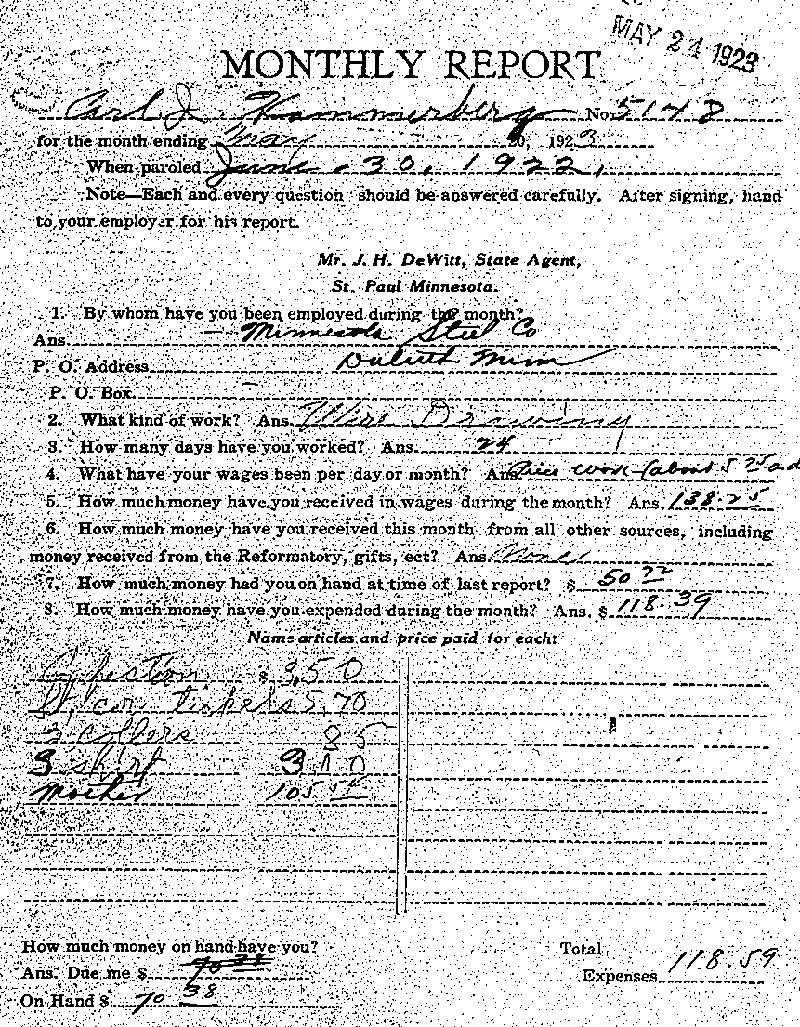 MAY 24 1923
MONTHLY REPORT
Carl J. Hammerberg No. 5148
for the month ending May 20, 1923
When paroled June 30, 1922,
Note—Each and every question should be answered carefully. After signing, hand
to your employer for his report.
Mr. J. H. DeWitt, State Agent,
St. Paul Minnesota.
1. By whom have you been employed during the month?
Ans. — Minnesota Steel Co
P. O. Address Duluth Minn
P. O. Box
2. What kind of work? Ans. Wire Drawing
3. How many days have you worked? Ans. 24
4. What have your wages been per day or month? Ans. Piece work (about 5 25 a d
5. How much money have you received in wages during the month? Ans. 138.25
6. How much money have you received this month from all other sources, including
money received from the Reformatory, gifts, ect? Ans. None
7. How much money had you on hand at time of last report? $ 50 72
8. How much money have you expended during the month? Ans. $ 118.39
Name articles and price paid for each:
$ 3.50
St. car tickets 5.70
3 collers 85
3 shirt 3.00
Mother 105
How much money on hand have you?
Ans. Due me $ 70 38
On Hand $ 70 38
Total
Expenses 118.59